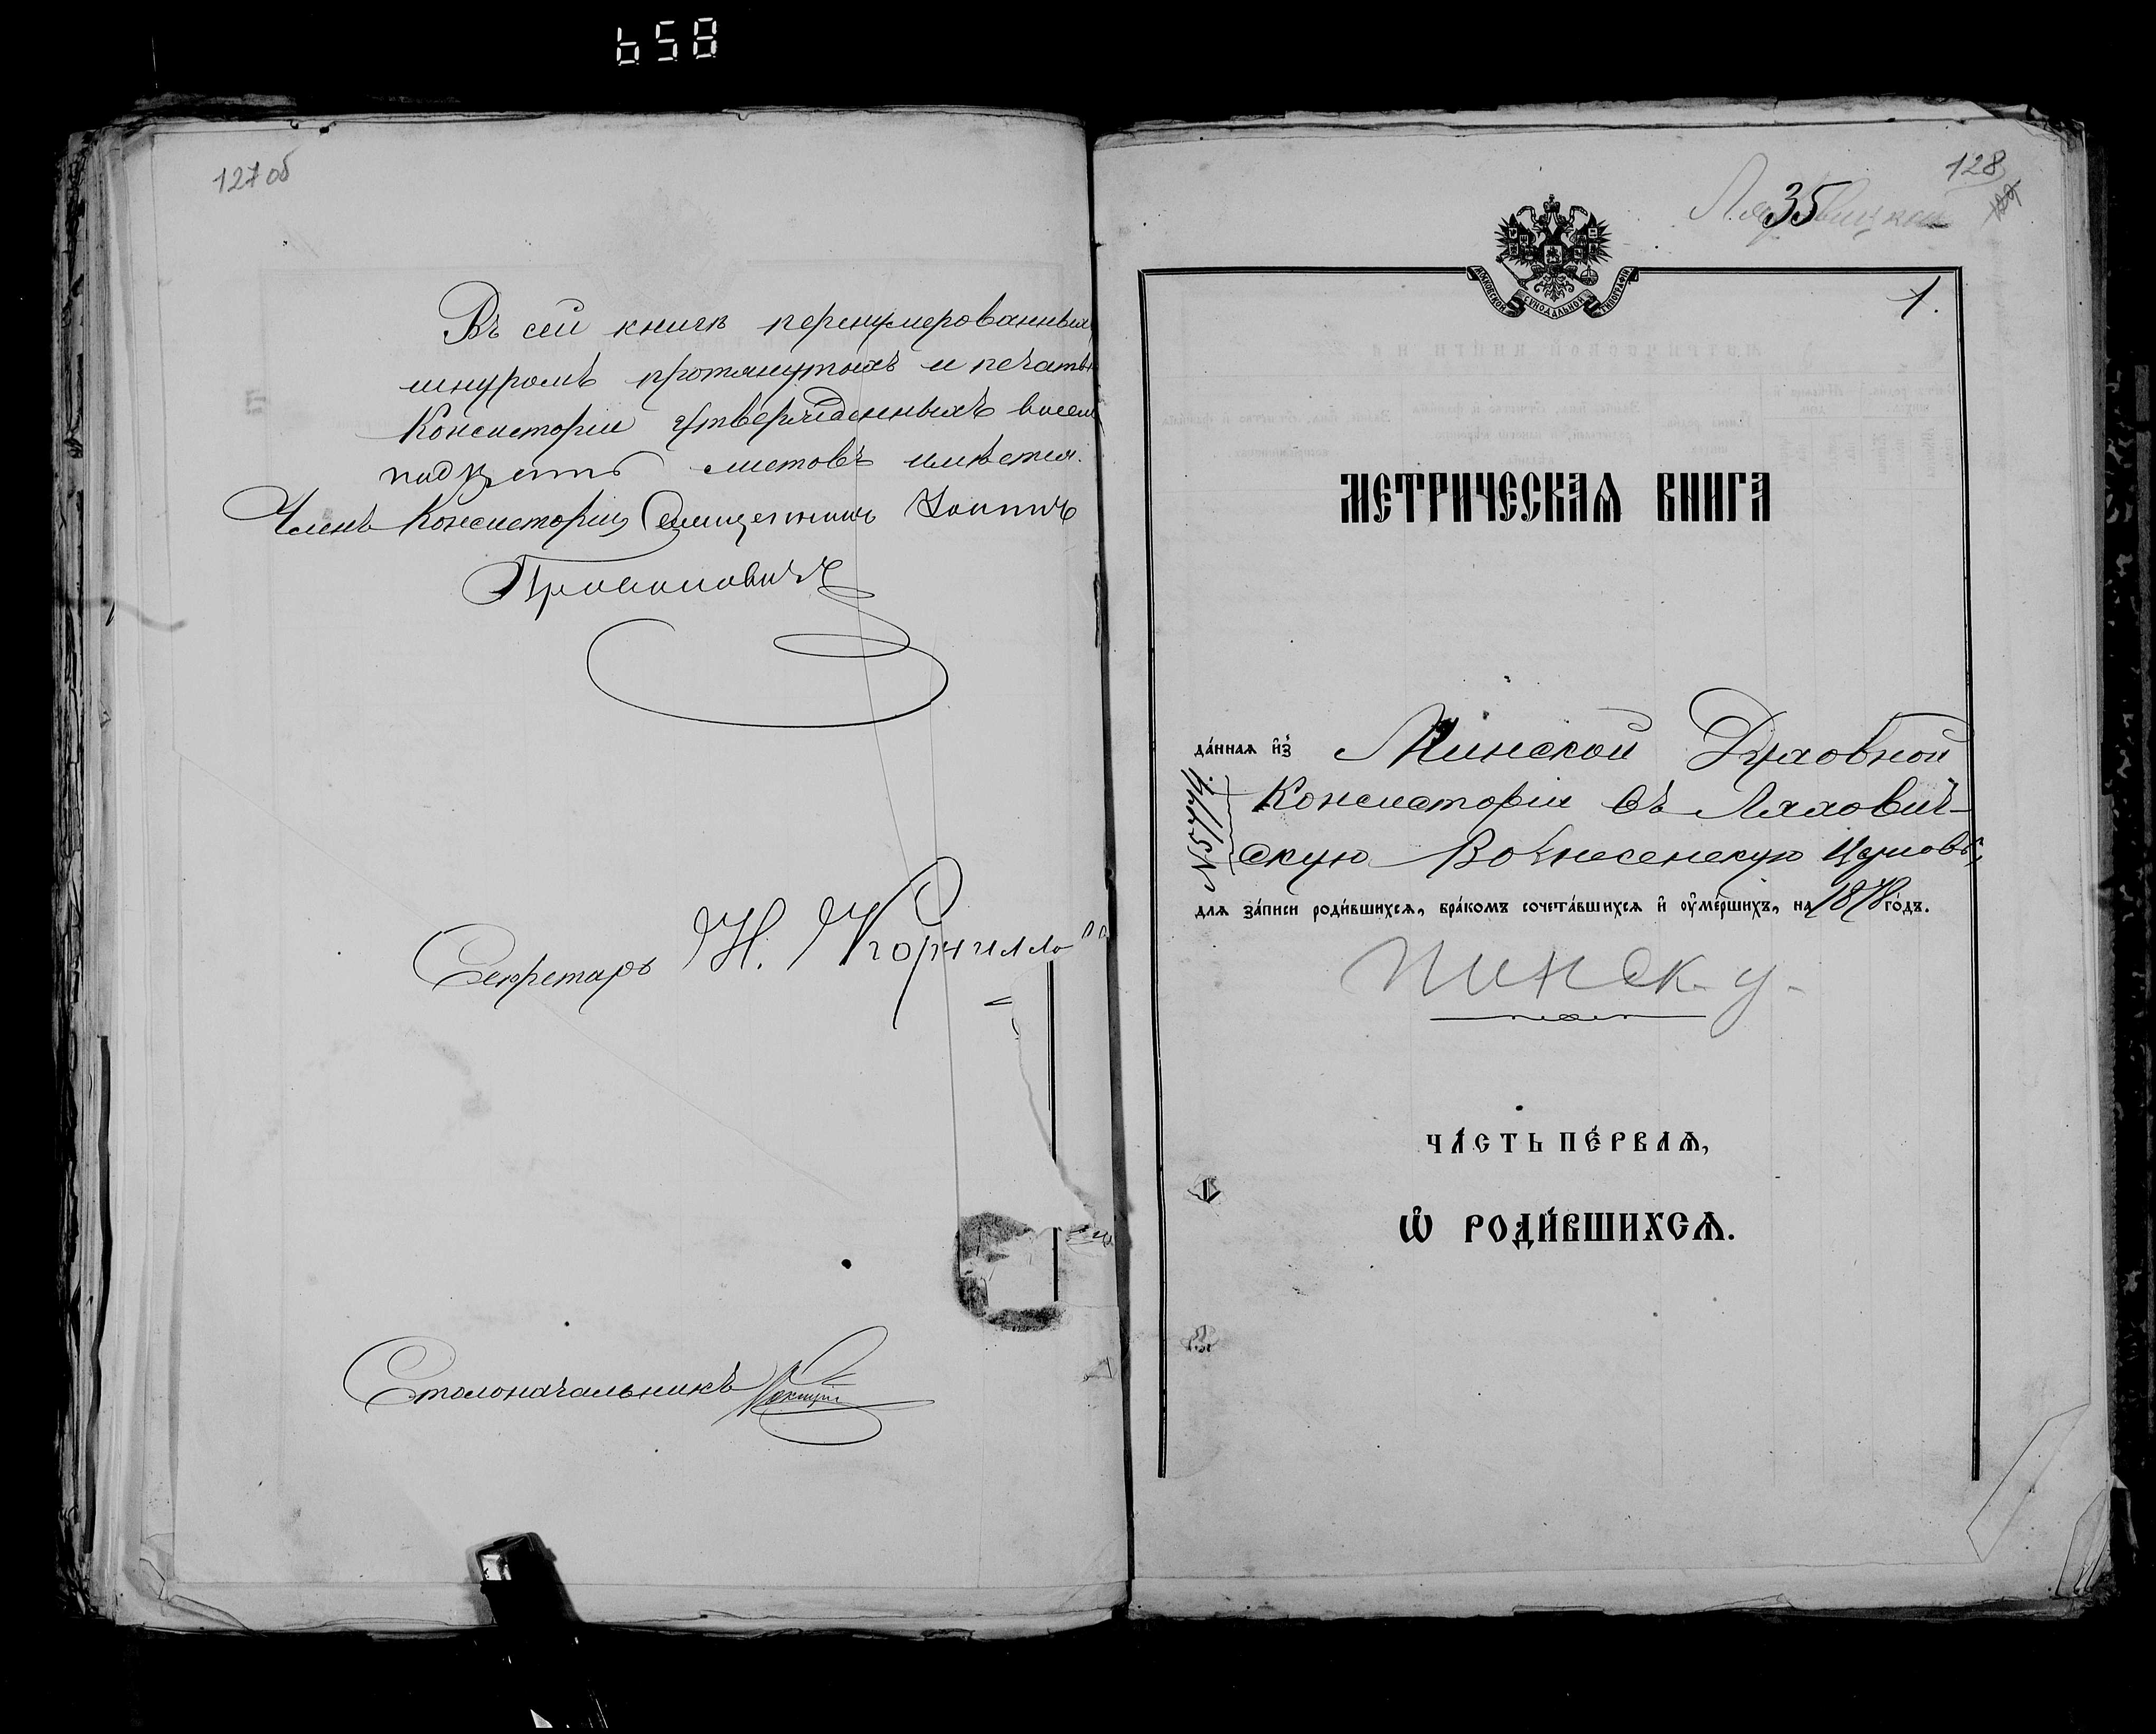 658
127 об
Въ сей книгѣ перенумерованныхъ
шнуромъ протянутыхъ и печатью
Консисторіи утвержденныхъ восемь
листовъ имѣется.
Членъ Консисторіи, Священникъ
Секретарь Н. Корнилло
Столоначальникъ
128
35
1.
МОСКОВСКОЙ СѴНОДАЛЬНОЙ ТИПОГРАФІИ
МЕТРИЧЕСКАѦ КНИГА
да́ннаѧ и҆з̾ Минской Духовной
Консисторіи въ Ляхович-
скую Вознесенскую Церковь,
№ 5774.
для за́писи роди́вшихсѧ, бра́комъ сочета́вшихсѧ и҆ ѹ҆ме́ршихъ, на 1878 го́дъ.
Пинск. у.
ЧА́СТЬ ПЕ́РВАѦ,
Ѡ҆ РОДИ́ВШИХСѦ.